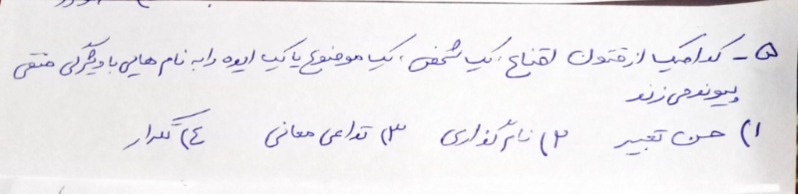 ۵- کدامیک از فنون اقناع، یک شخص، یک موضوع یا یک ایده را به نام هایی با ویژگی منفی
پیوند می زند
۱) حسن تعبیر ۲) نام گذاری ۳) تداعی معانی ۴) تکرار